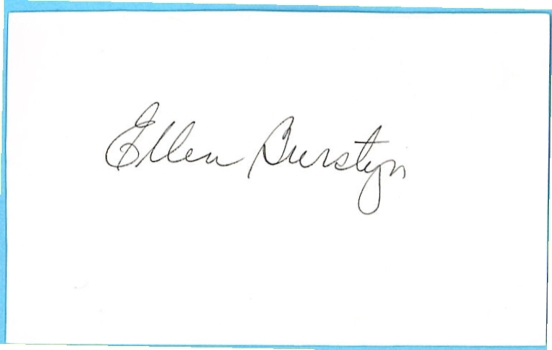 Ellen Burstyn